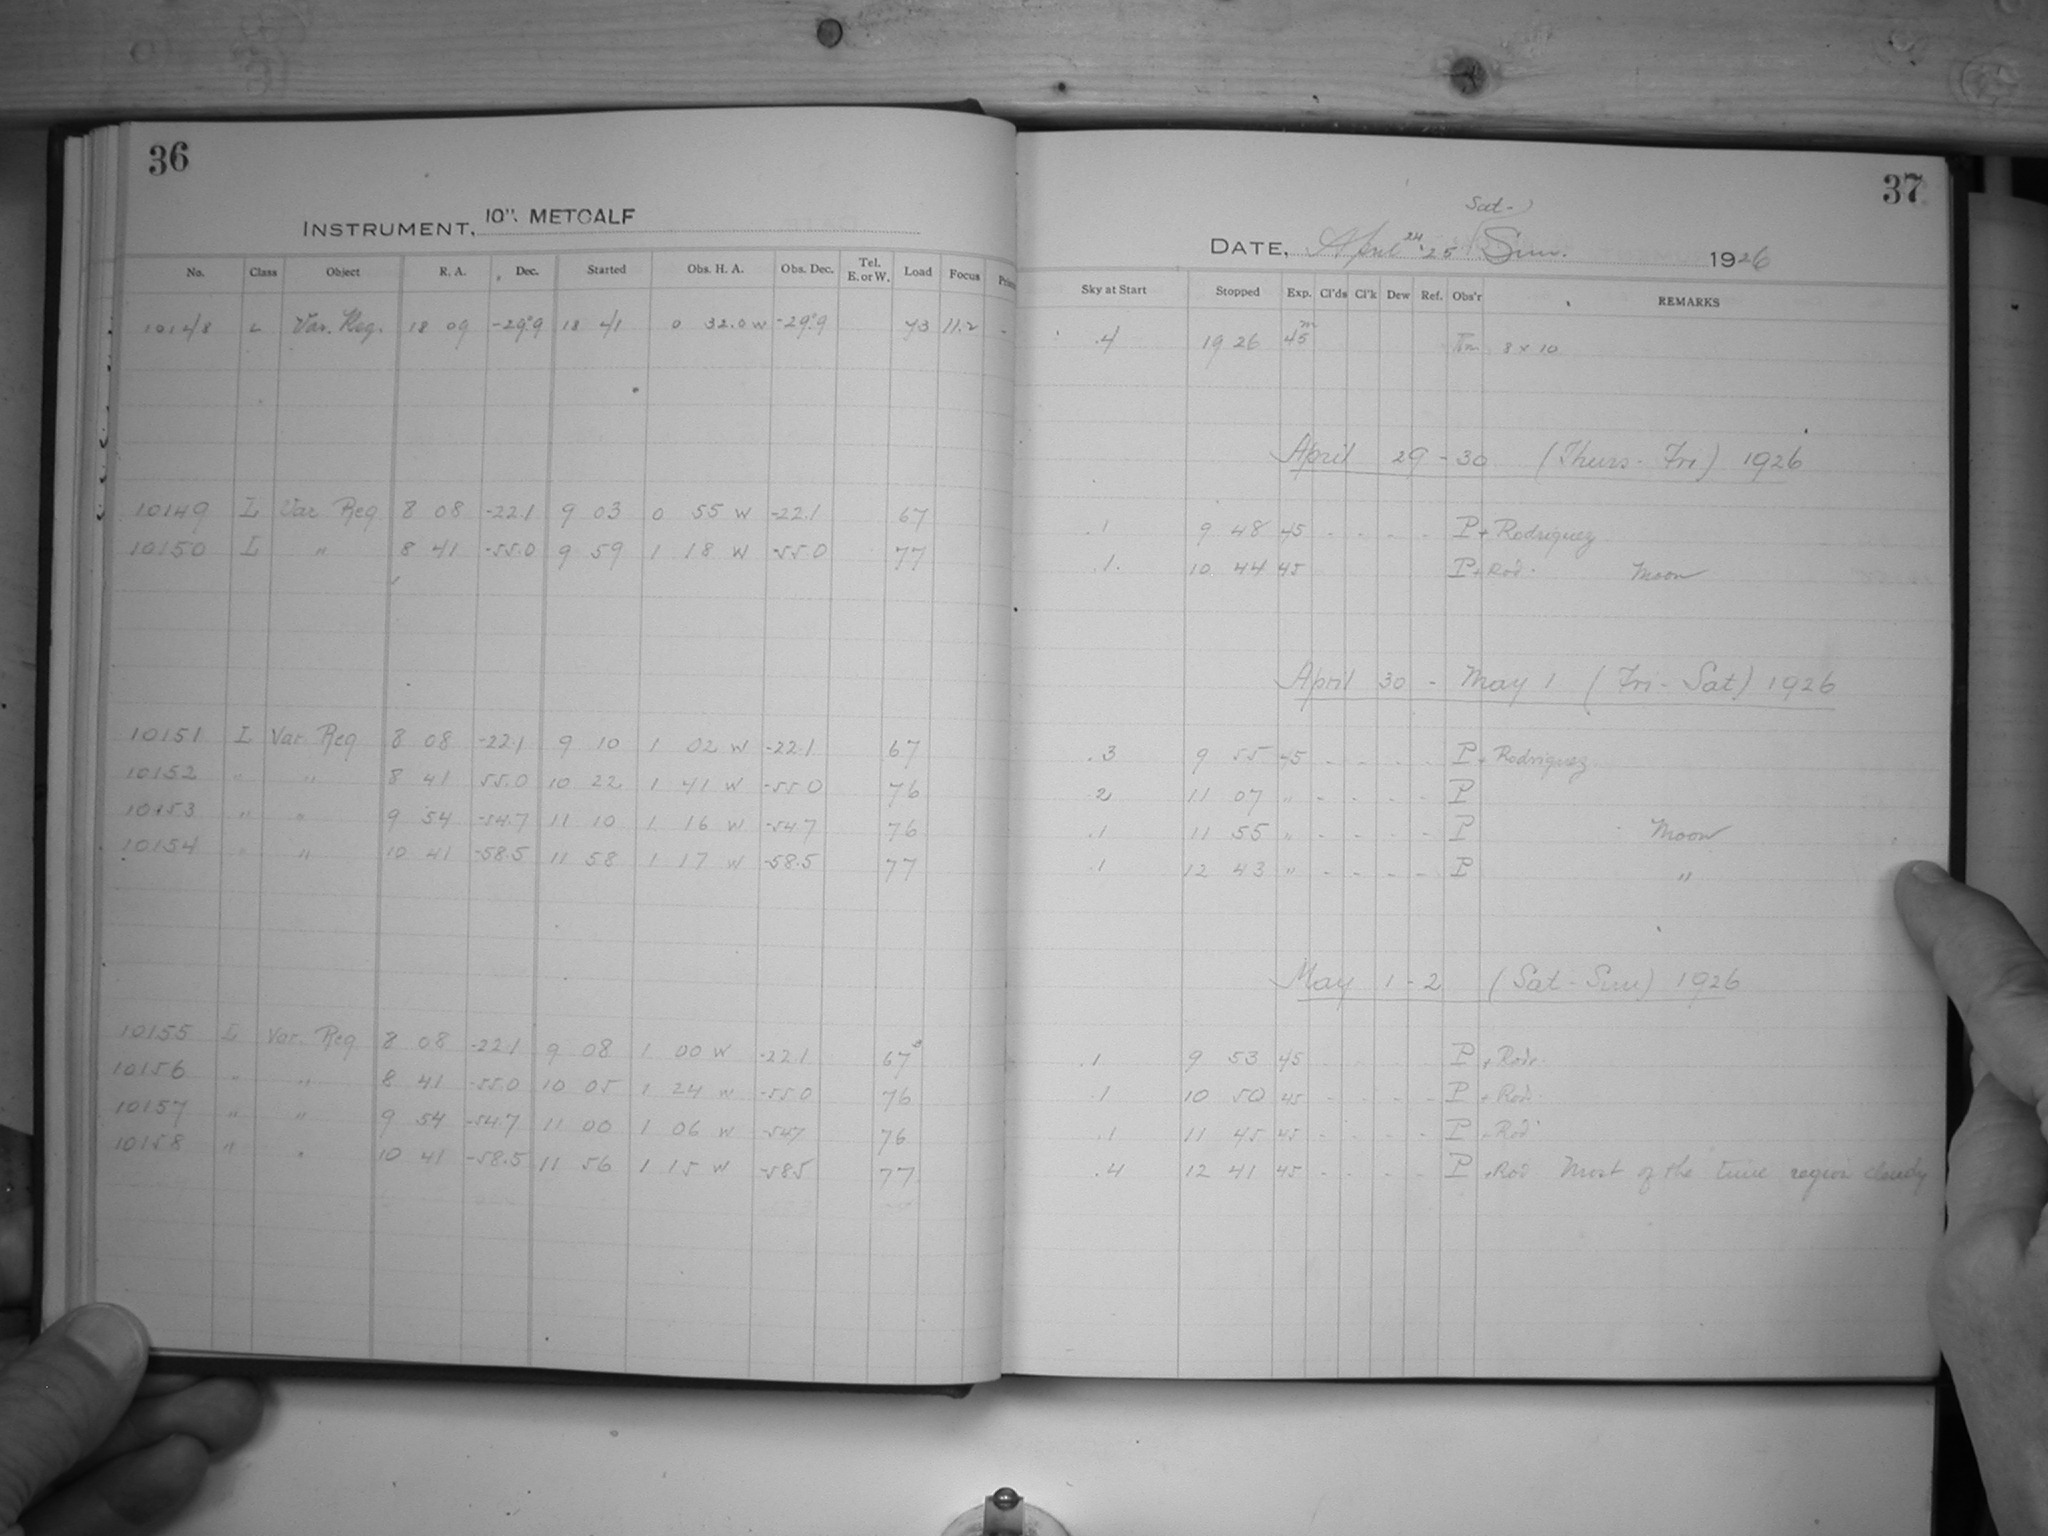 36
INSTRUMENT, 10". METCALF
No. Class Object R. A. Dec. Started Obs. H. A. Obs. Dec. Tel. E. or W. Load Focus
10148 L Var. Reg. 18 09 -29°9 18 41 0 32.0 W -29°9 73 11.2 -
10149 L Var Reg 8 08 -22.1 9 03 0 55 W -22.1 67
10150 L " 8 41 -55.0 9 59 1 18 W -55.0 77
10151 L Var Reg 8 08 -22.1 9 10 1 02 W -22.1 67
10152 " " 8 41 55.0 10 22 1 41 W -55.0 76
10153 " " 9 54 -54.7 11 10 1 16 W -54.7 76
10154 " " 10 41 -58.5 11 58 1 17 W -58.5 77
10155 L Var. Reg 8 08 -22.1 9 08 1 00 W -22.1 67
10156 " " 8 41 -55.0 10 05 1 24 W -55.0 76
10157 " " 9 54 -54.7 11 00 1 06 W -54.7 76
10158 " " 10 41 -58.5 11 56 1 15 W -58.5 77
37
Sat-
DATE, April 24, 25 Sun. 1926
Sky at Start Stopped Exp. Cl'ds Cl'k Dew Ref. Obs'r REMARKS
.4 19 26 45m 8 x 10
April 29 - 30 (Thurs - Fri) 1926
.1 9 48 45 - - - - P + Rodriguez
.1 10 44 45 P + Rod. Moon
April 30 - May 1 (Fri - Sat) 1926
.3 9 55 45 - - - - P + Rodriguez
.2 11 07 " - - - - P
.1 11 55 " - - - - P Moon
.1 12 43 " - - - - P "
May 1 - 2 (Sat - Sun) 1926
.1 9 53 45 P + Rodr.
.1 10 50 45 - - - - P + Rod.
.1 11 45 45 - - - - P + Rod
.4 12 41 45 - - - - P + Rod Most of the time region cloudy